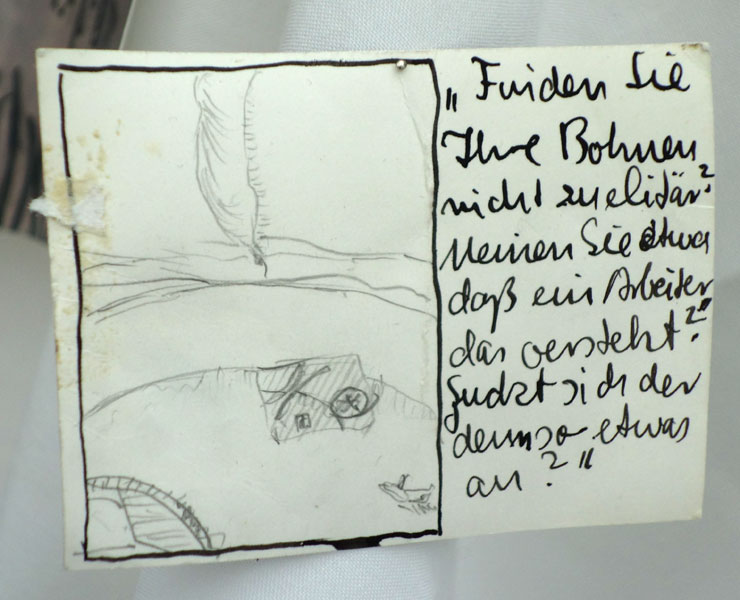 „Finden Sie
Ihre Bohnen
nicht zu elitär?
Meinen Sie etwa
daß ein Arbeiter
das versteht?"
Guckt sich der
denn so etwas
an?"